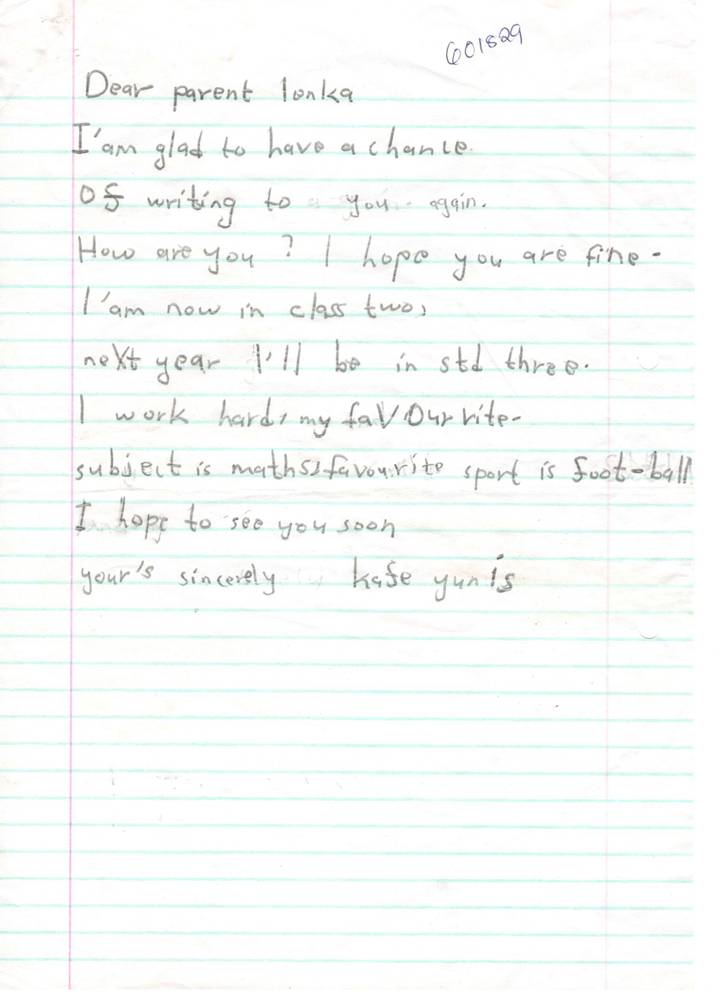 601829
Dear parent lonka
I'am glad to have a chance
of writing to you again.
How are you? I hope you are fine-
I'am now in class two,
neXt year I'll be in std three.
I work hard, my favOurrite-
subject is maths, favourite sport is foot-ball
I hope to see you soon
your's sincerely kafe yunis